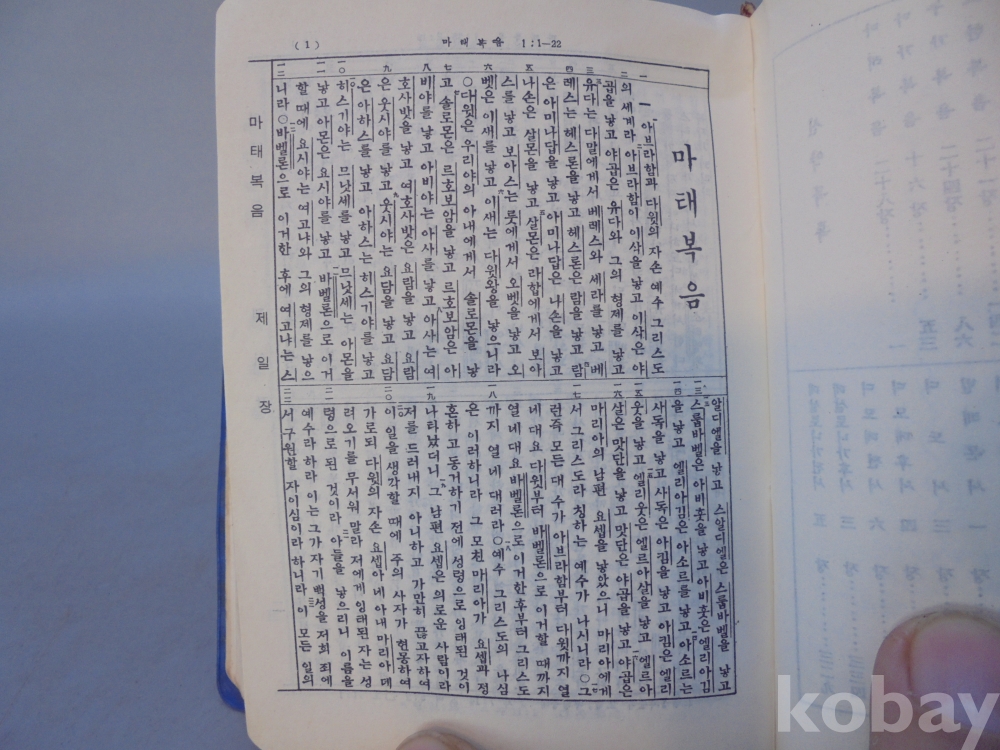 (1) 마태복음 1:1—22
마태복음
一 아브라함과 다윗의 자손 예수 그리스도
의 세계라 아브라함이 이삭을 낳고 이삭은 야
곱을 낳고 야곱은 유다와 그의 형제를 낳고
유다는 다말에게서 베레스와 세라를 낳고 베
레스는 헤스론을 낳고 헤스론은 람을 낳고 람
은 아미나답을 낳고 아미나답은 나손을 낳고
나손은 살몬을 낳고 살몬은 라합에게서 보아
스를 낳고 보아스는 룻에게서 오벳을 낳고 오
벳은 이새를 낳고 이새는 다윗왕을 낳으니라
○다윗은 우리야의 아내에게서 솔로몬을 낳
고 솔로몬은 르호보암을 낳고 르호보암은 아
비야를 낳고 아비야는 아사를 낳고 아사는 여
호사밧을 낳고 여호사밧은 요람을 낳고 요람
은 웃시야를 낳고 웃시야는 요담을 낳고 요담
은 아하스를 낳고 아하스는 히스기야를 낳고
히스기야는 므낫세를 낳고 므낫세는 아몬을
낳고 아몬은 요시야를 낳고 바벨론으로 이거
할 때에 요시야는 여고냐와 그의 형제를 낳으
니라 ○바벨론으로 이거한 후에 여고냐는 스
알디엘을 낳고 스알디엘은 스룹바벨을 낳고
스룹바벨은 아비훗을 낳고 아비훗은 엘리아김
을 낳고 엘리아김은 아소르를 낳고 아소르는
사독을 낳고 사독은 아킴을 낳고 아킴은 엘리
웃을 낳고 엘리웃은 엘르아살을 낳고 엘르아
살은 맛단을 낳고 맛단은 야곱을 낳고 야곱은
마리아의 남편 요셉을 낳았으니 마리아에게
서 그리스도라 칭하는 예수가 나시니라 ○그
런즉 모든 대 수가 아브라함부터 다윗까지 열
네 대요 다윗부터 바벨론으로 이거할 때까지
열 네 대요 바벨론으로 이거한 후부터 그리스도
까지 열 네 대러라 ○예수 그리스도의 나심
은 이러하니라 그 모친 마리아가 요셉과 정
혼하고 동거하기 전에 성령으로 잉태된 것이
나타났더니 그 남편 요셉은 의로운 사람이라
저를 드러내지 아니하고 가만히 끊고자하여
이 일을 생각할 때에 주의 사자가 현몽하여
가로되 다윗의 자손 요셉아 네 아내 마리아 데
려오기를 무서워 말라 저에게 잉태된 자는 성
령으로 된 것이라 아들을 낳으리니 이름을
예수라 하라 이는 그가 자기 백성을 저희 죄에
서 구원할 자이심이라 하니라 이 모든 일의
마태복음 제일장
kobay